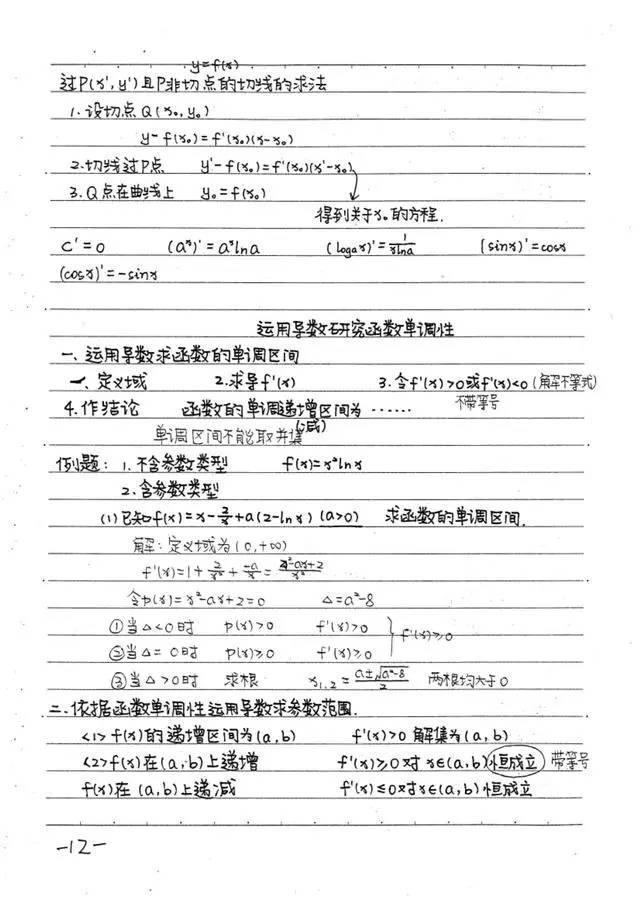 y=f(x)
过P(x',y')且P非切点的切线的求法
1.设切点Q(x₀,y₀)
y-f(x₀)=f'(x₀)(x-x₀)
2.切线过P点 y'-f(x₀)=f'(x₀)(x'-x₀)
3.Q点在曲线上 y₀=f(x₀)
得到关于x₀的方程.
C'=0 (aˣ)'=aˣlna (logax)'=1/xlna (sinx)'=cosx
(cosx)'=-sinx
运用导数研究函数单调性
一、运用导数求函数的单调区间
一、定义域 2.求导f'(x) 3.令f'(x)>0或f'(x)<0(解不等式)
4.作结论 函数的单调递增区间为…… 不带等号
(减)
单调区间不能取并集
例题：1.不含参数类型 f(x)=x²lnx
2.含参数类型
(1)已知f(x)=x-2/x+a(2-lnx)(a>0) 求函数的单调区间.
解：定义域为(0,+∞)
f'(x)=1+2/x²+-a/x=x²-ax+2/x²
令p(x)=x²-ax+2=0 Δ=a²-8
①当Δ<0时 p(x)>0 f'(x)>0
②当Δ=0时 p(x)≥0 f'(x)≥0 } f'(x)≥0
③当Δ>0时 求根 x₁,₂=a±√a²-8/2 两根均大于0
二.依据函数单调性运用导数求参数范围.
<1>f(x)的递增区间为(a,b) f'(x)>0解集为(a,b)
<2>f(x)在(a,b)上递增 f'(x)≥0对x∈(a,b)恒成立 带等号
f(x)在(a,b)上递减 f'(x)≤0对x∈(a,b)恒成立
-12-